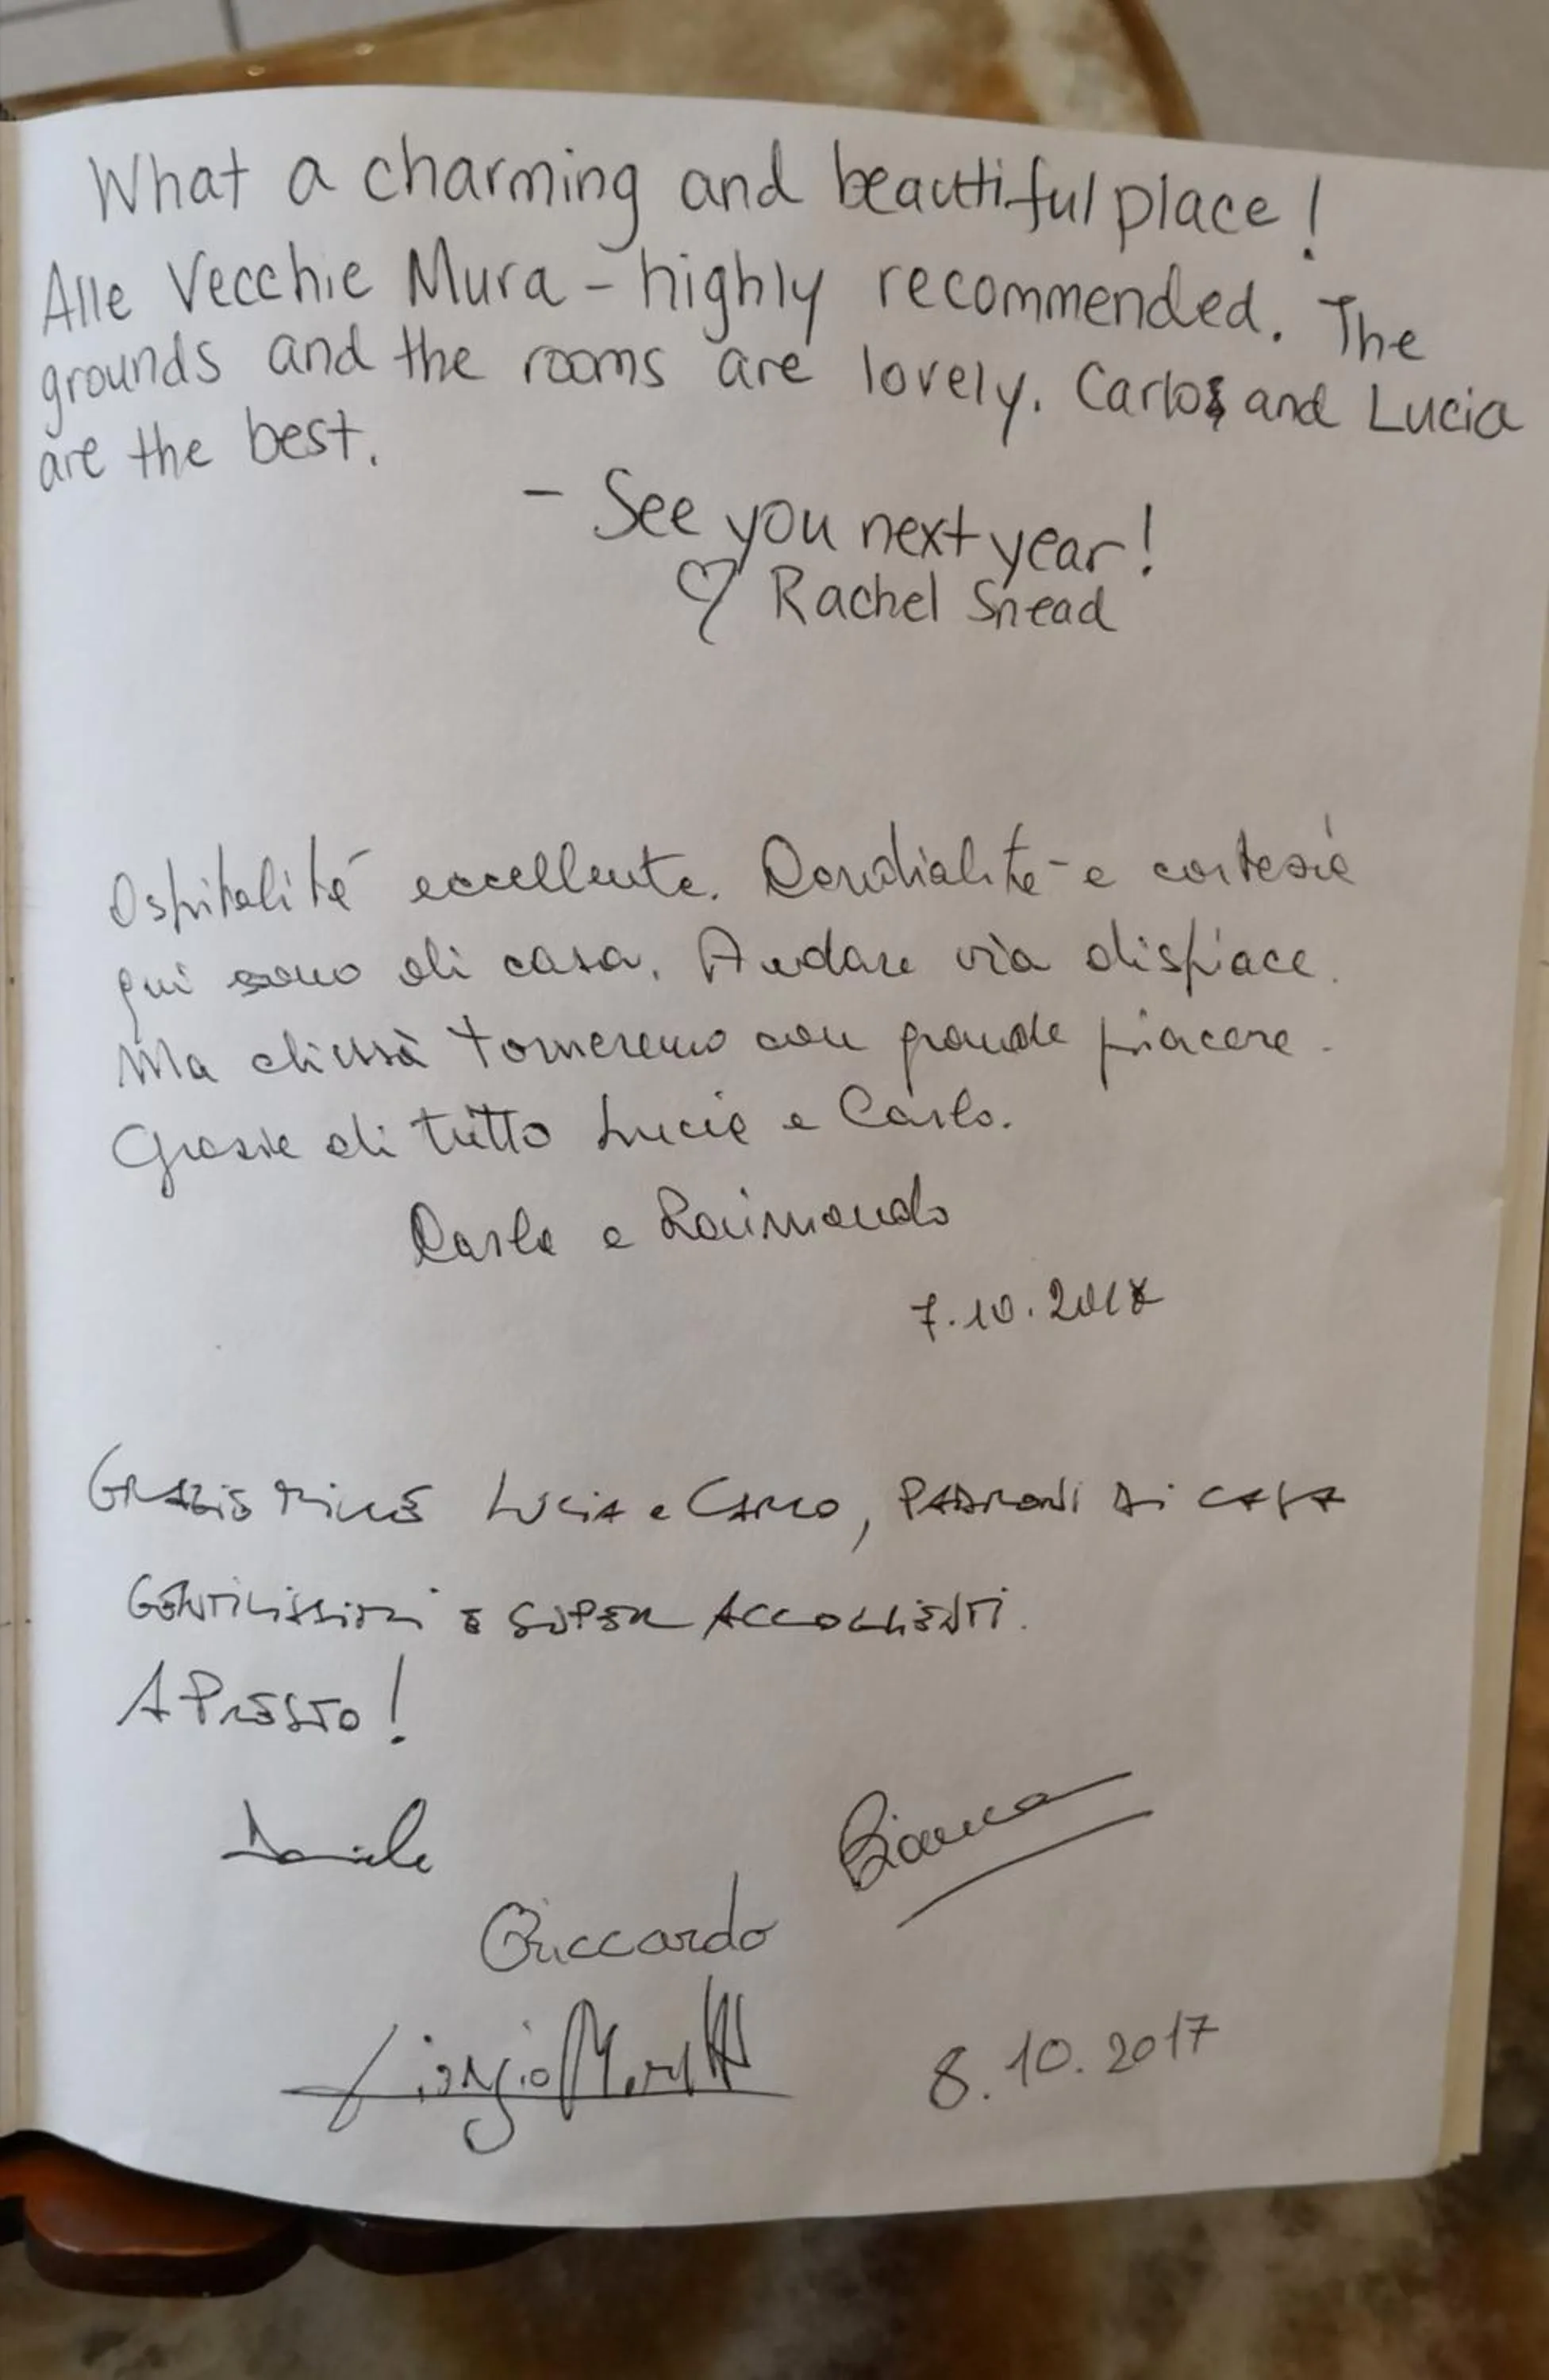 What a charming and beautiful place!
Alle Vecchie Mura - highly recommended. The
grounds and the rooms are lovely. Carlo and Lucia
are the best.
- See you next year!
♡ Rachel Snead
Ospitalità eccellente. Cordialità e cortesia
qui sono di casa. Andare via dispiace.
Ma chissà torneremo con grande piacere.
Grazie di tutto Lucia e Carlo.
Carla e Raimondo
7.10.2017
GRAZIE MILLE LUCIA e CARLO, PADRONI DI CASA
GENTILISSIMI E SUPER ACCOGLIENTI.
A PRESTO!
Daniele
Bianca
Riccardo
Giorgio
8.10.2017